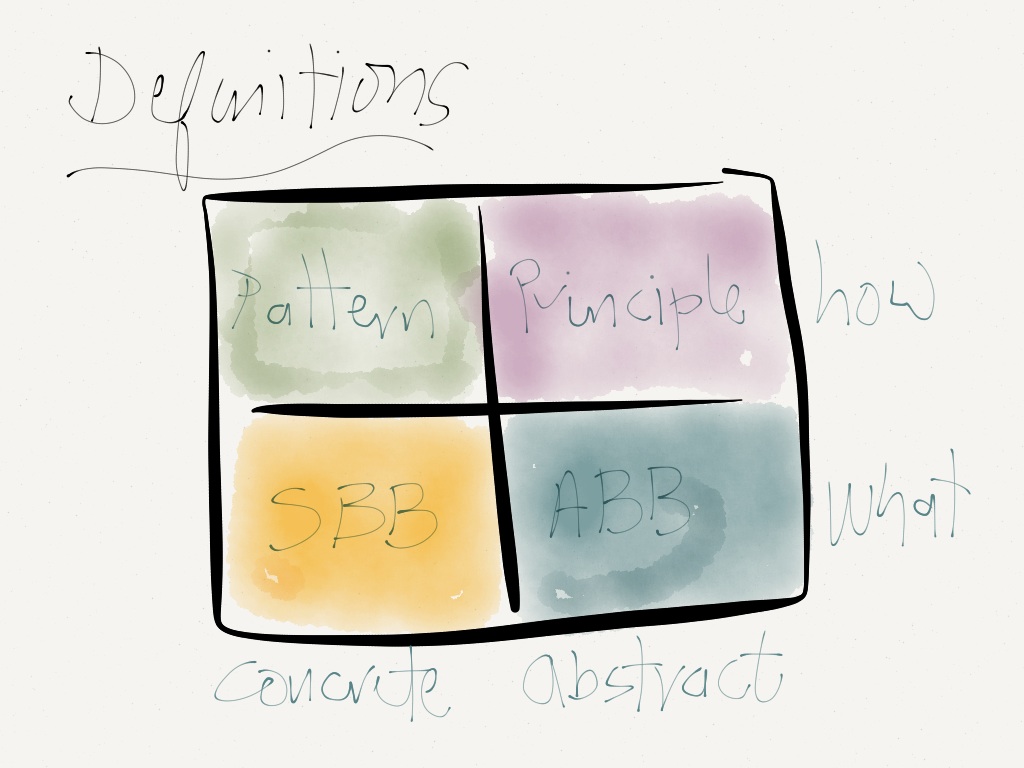 Definitions
Pattern Principle how
SBB ABB What
concrete abstract